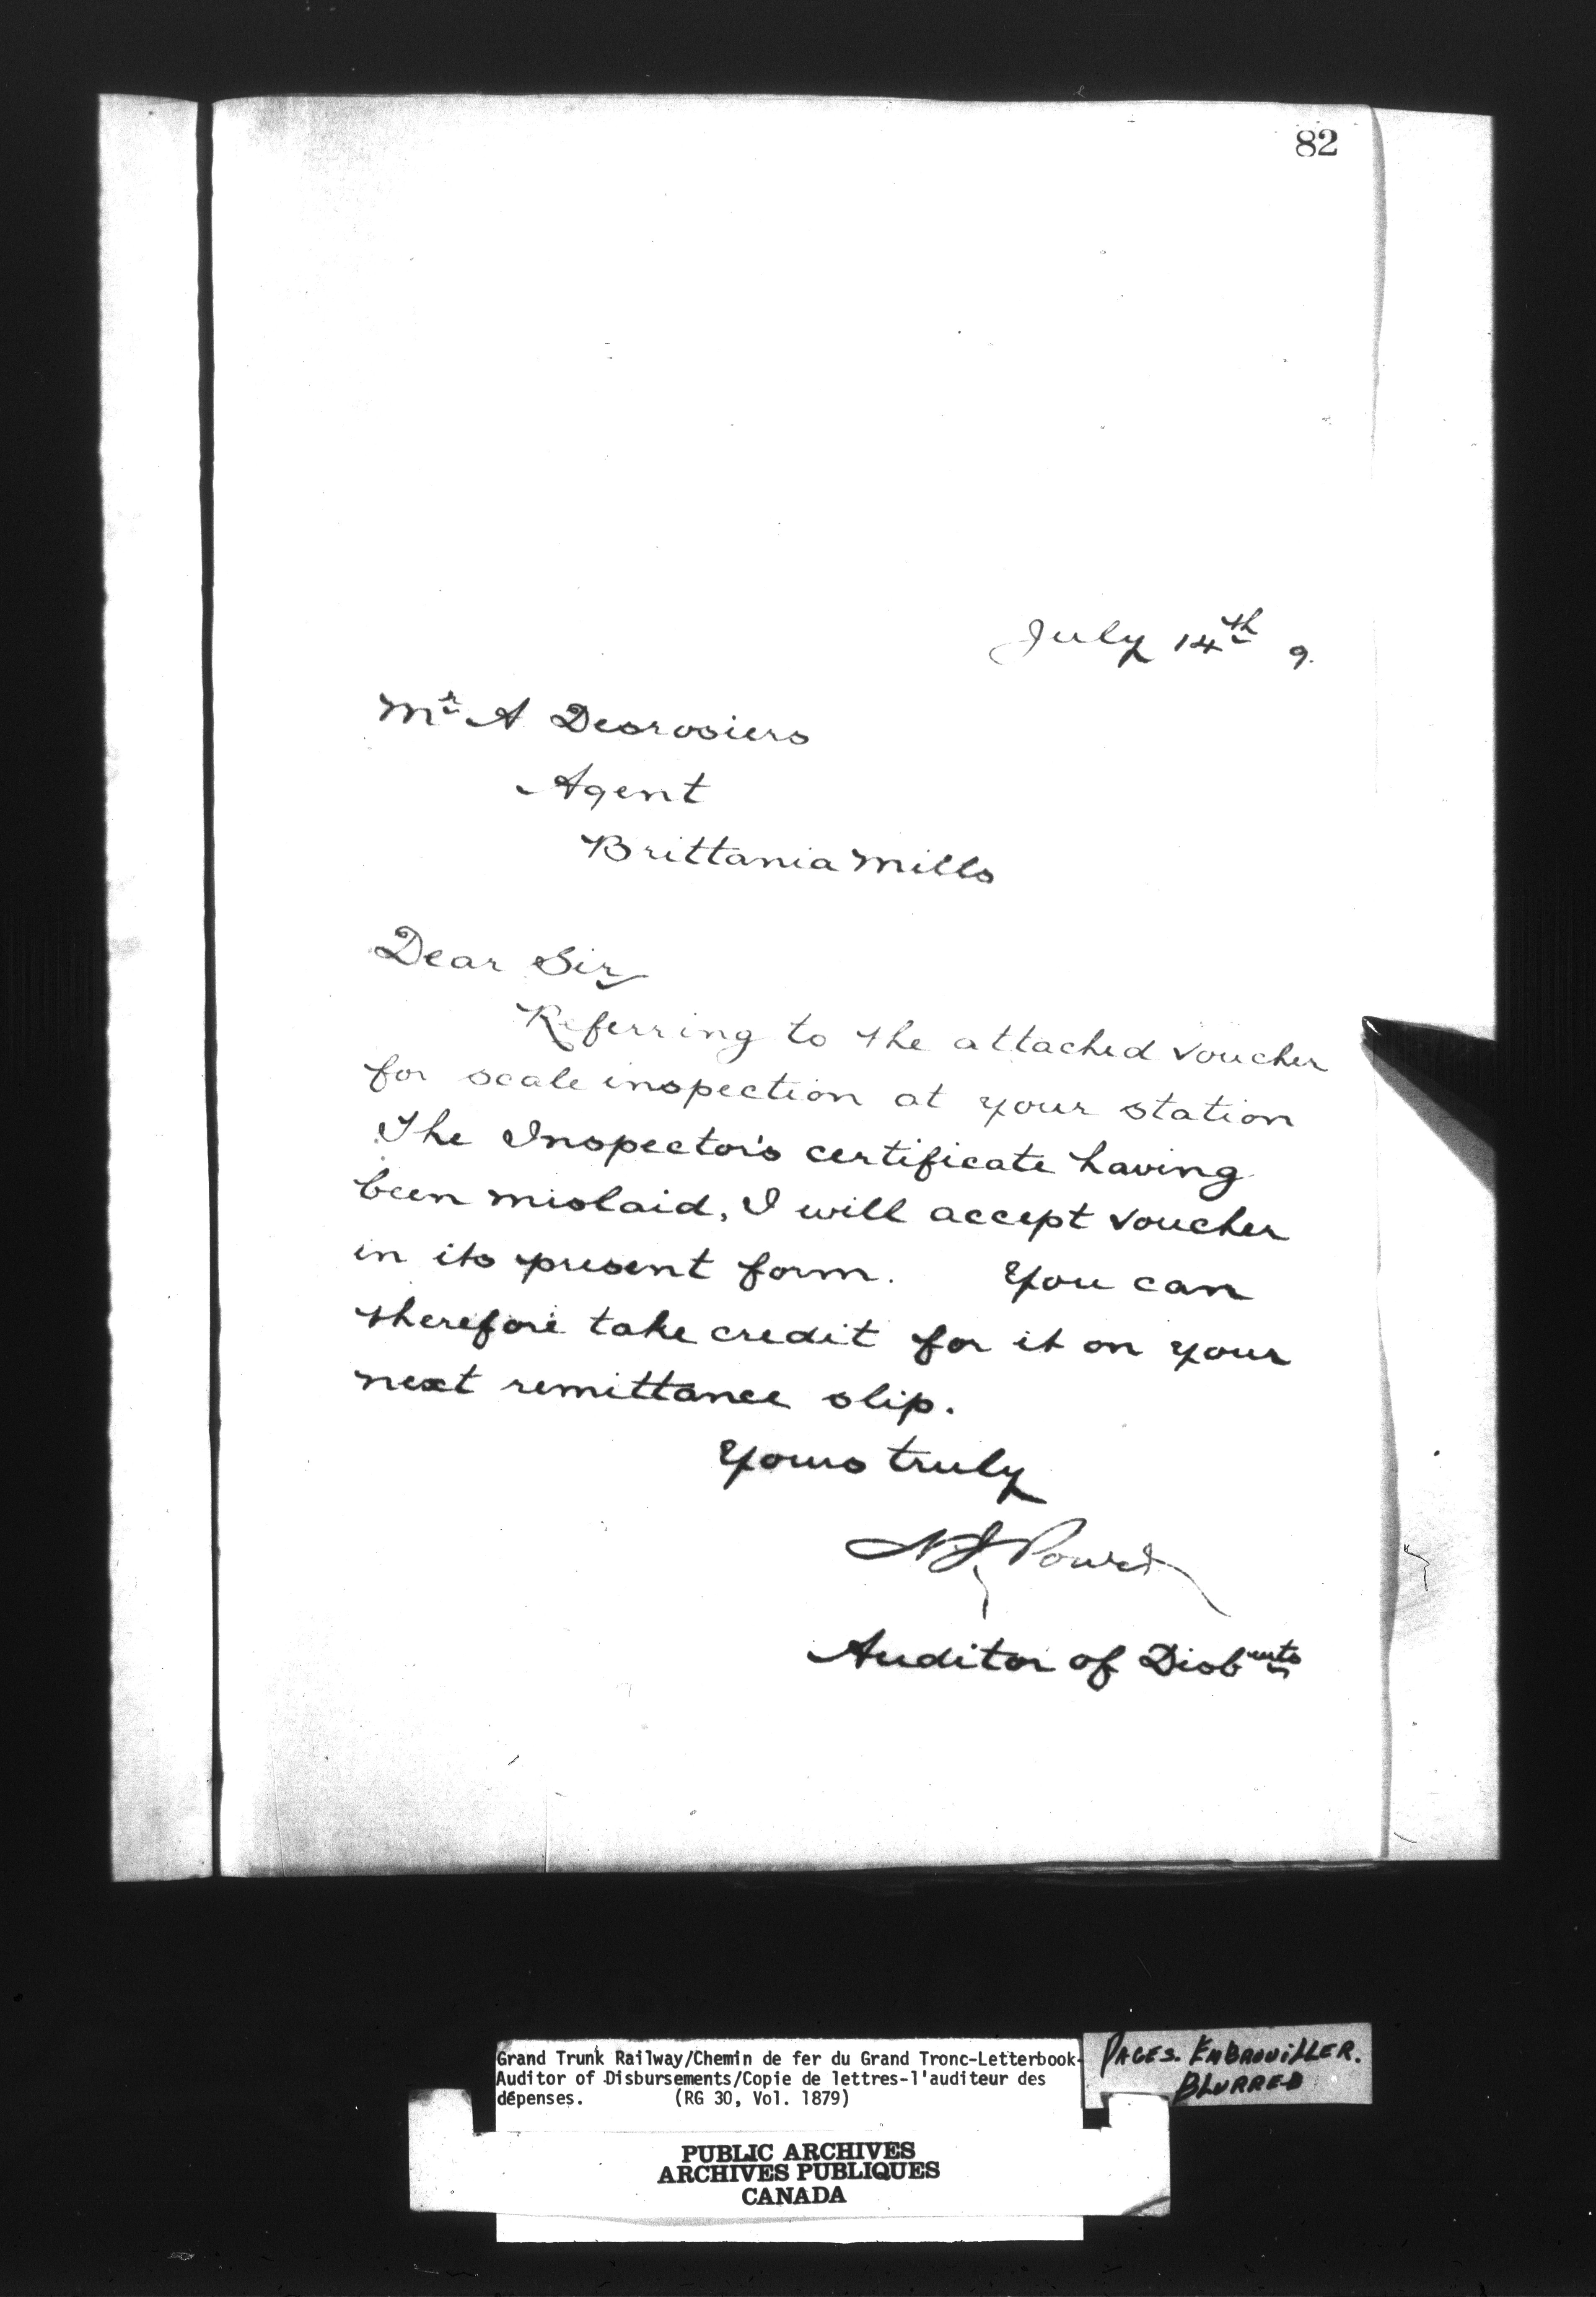 82
July 14th 9.
Mr A Desrosiers
Agent
Brittania Mills
Dear Sir
Referring to the attached voucher
for scale inspection at your station
The Inspector's certificate having
been mislaid, I will accept voucher
in its present form. You can
therefore take credit for it on your
next remittance slip.
Yours truly
Auditor of Disbmts
Grand Trunk Railway/Chemin de fer du Grand Tronc-Letterbook-
Auditor of Disbursements/Copie de lettres-l'auditeur des
dépenses. (RG 30, Vol. 1879)
PAGES. EMBROUILLER.
BLURRED
PUBLIC ARCHIVES
ARCHIVES PUBLIQUES
CANADA